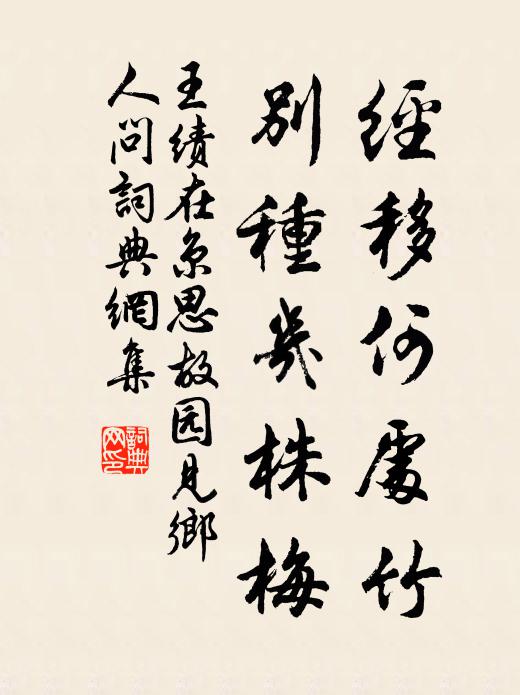 經移何處竹
別種幾株梅
王績在京思故园見鄉
人問詞典網集
詞典
网印